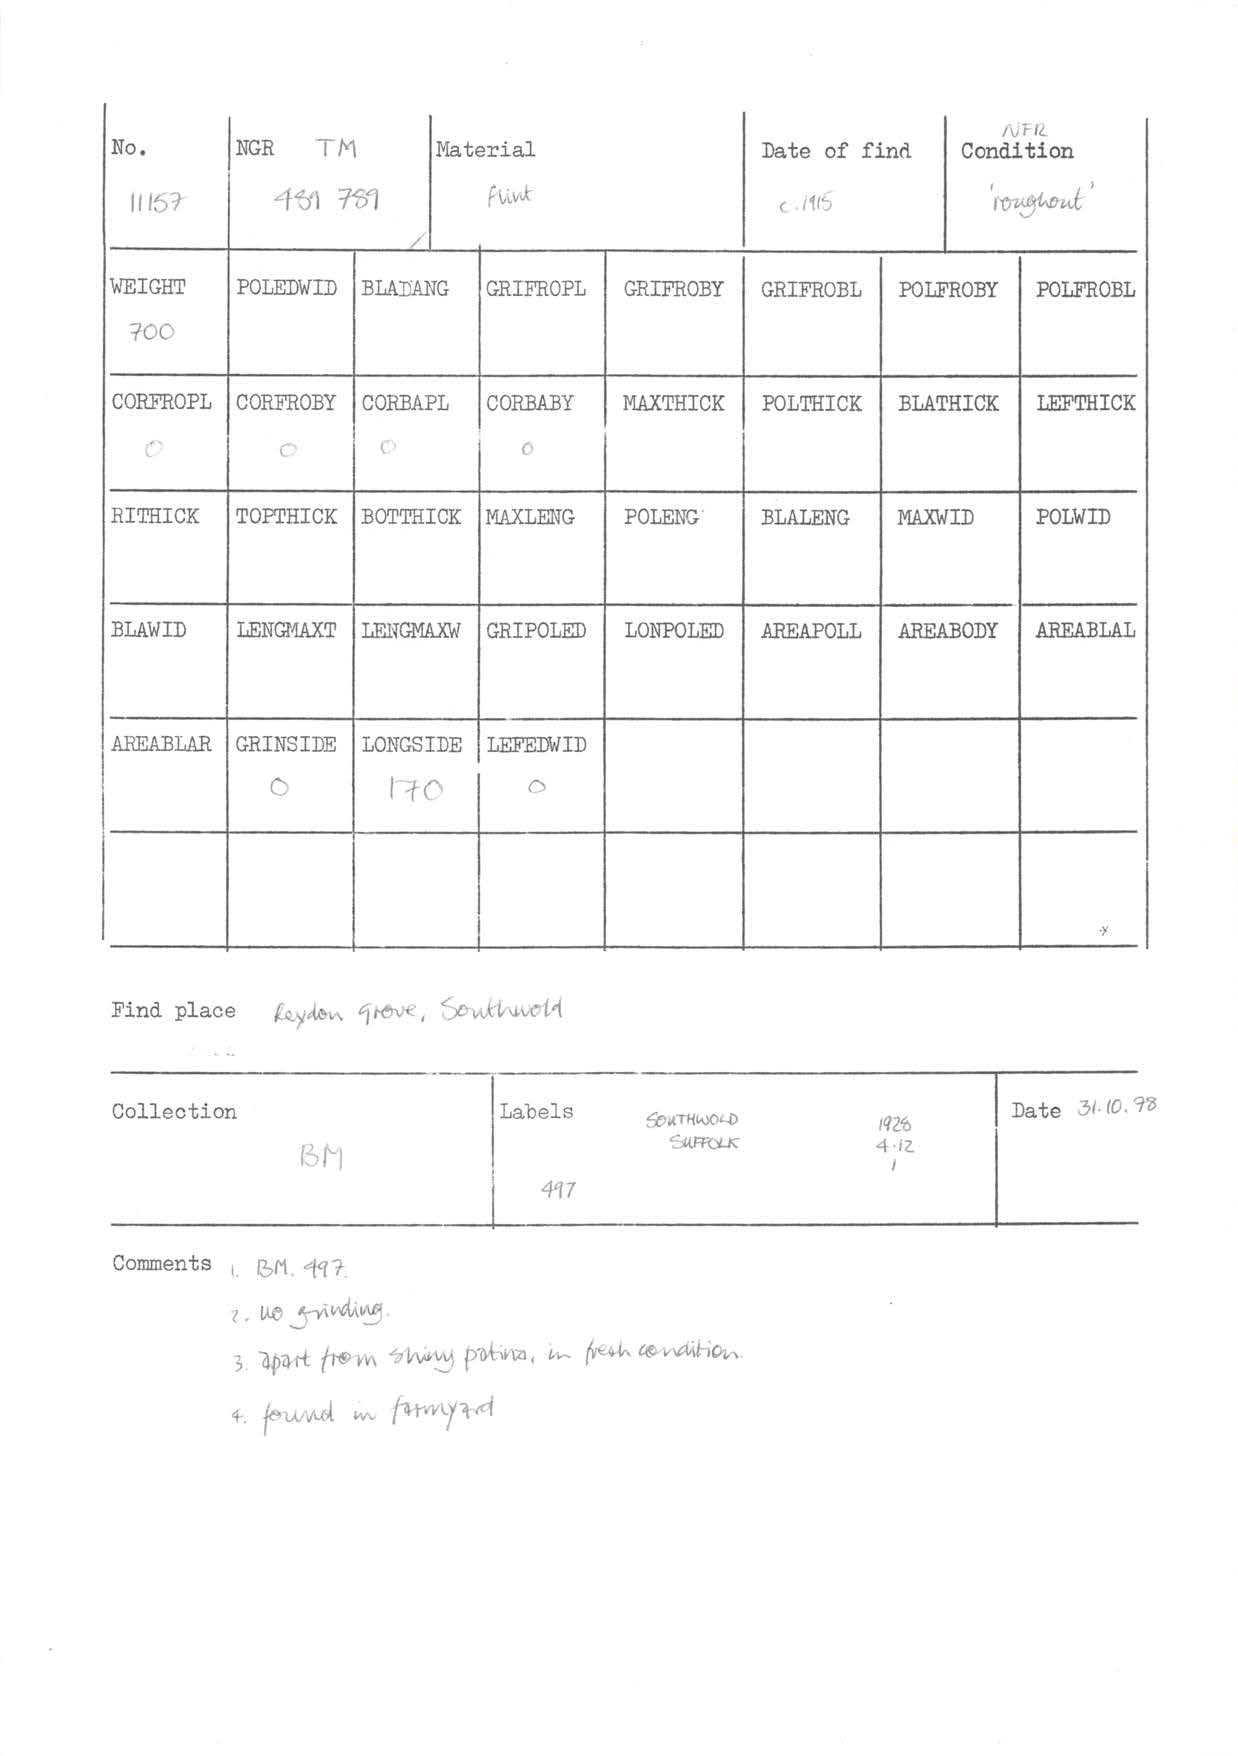 NFR
No. NGR TM Material Date of find Condition
11157 489 789 Flint c.1915 'roughout'
WEIGHT POLEDWID BLADANG GRIFROPL GRIFROBY GRIFROBL POLFROBY POLFROBL
700
CORFROPL CORFROBY CORBAPL CORBABY MAXTHICK POLTHICK BLATHICK LEFTHICK
0 0 0 0
RITHICK TOPTHICK BOTTHICK MAXLENG POLENG BLALENG MAXWID POLWID
BLAWID LENGMAXT LENGMAXW GRIPOLED LONPOLED AREAPOLL AREABODY AREABLAL
AREABLAR GRINSIDE LONGSIDE LEFEDWID
0 170 0
Find place Reydon Grove, Southwold
Collection Labels SOUTHWOLD 1928 Date 31.10.98
BM SUFFOLK 4.12
1
497
Comments 1. BM. 497.
2. no grinding.
3. apart from shiny patina, in fresh condition.
4. found in farmyard